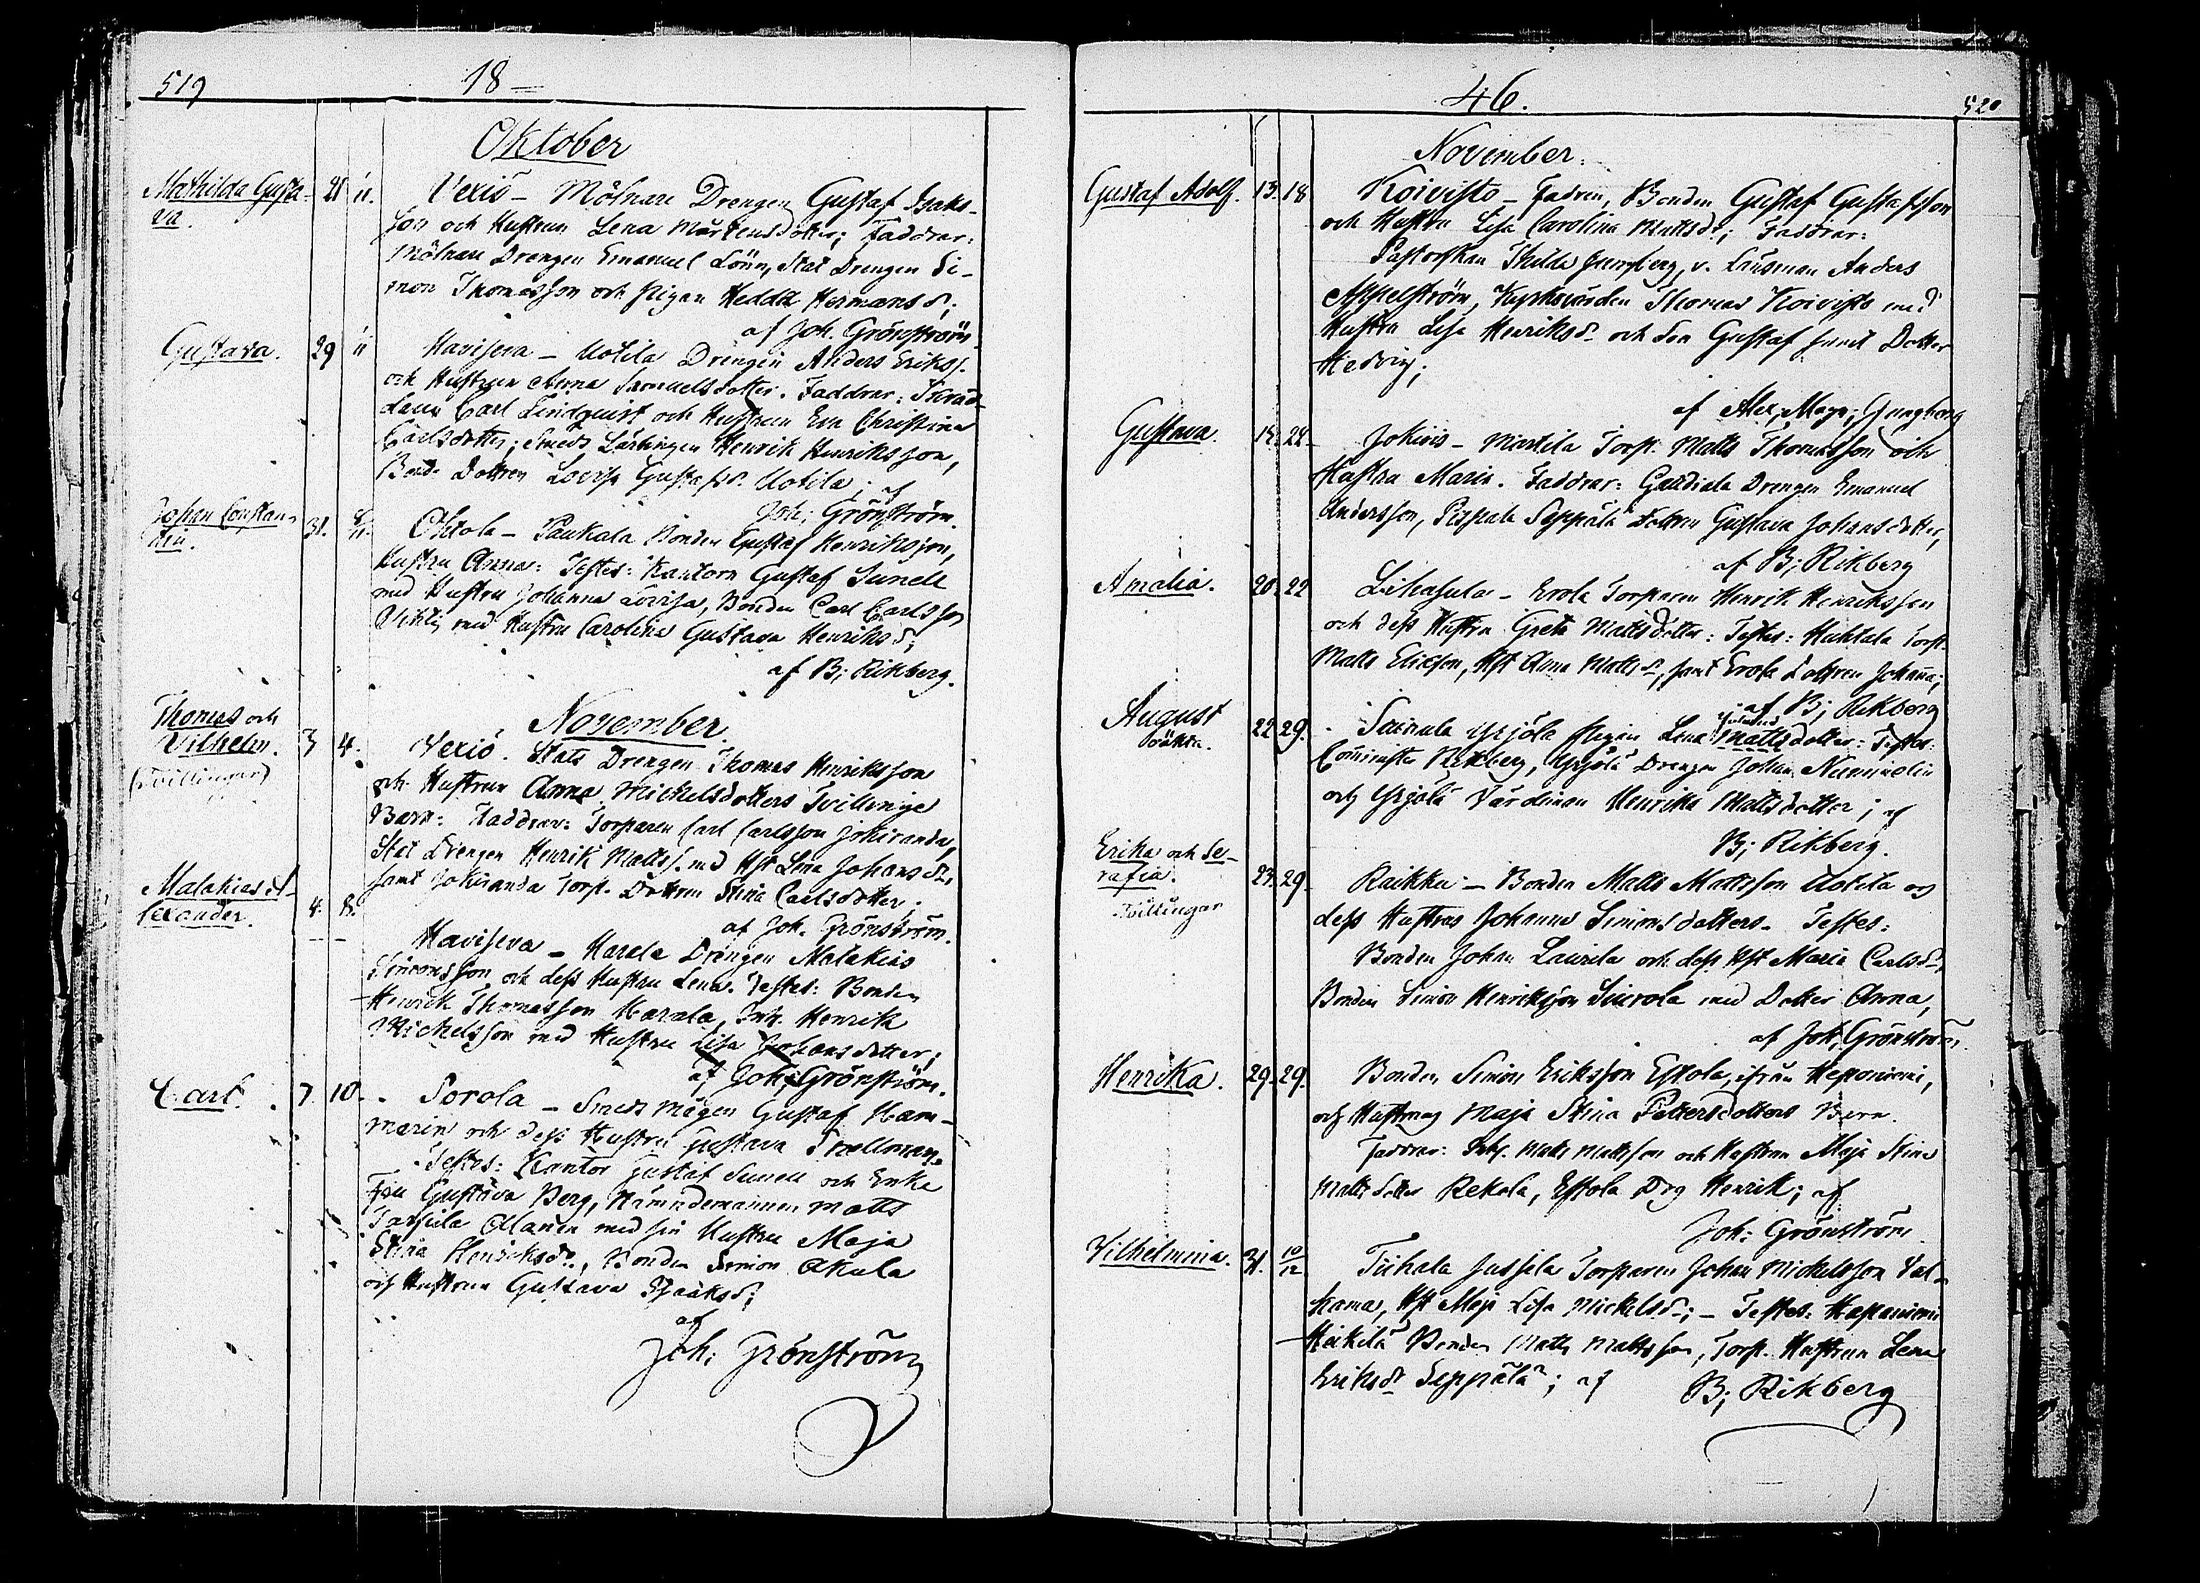 519
18
Oktober
Mathilda Gusta-
va.
28 11.
Vexiö - Mölnare Drengen Gustaf Isaks-
son och Hustrun Lena Mårtensdotter; Faddrar:
Mölnare Drengen Emanuel Lönn, Stat Drengen Si-
mon Thomasson och Pigan Hedda Hermansdr;
af Joh. Grönström.
Gustava.
29 11
Haviseva - Uotila Drengen Anders Eriks.
och Hustrun Anna Samuelsdotter. Faddrar: Skräd-
Carl Lindquist och Hustrun Eva Christina
Carlsdotter; Smeds Lärlingen Henrik Henriksson,
Bond. Dottren Lovisa Gustafsdr. Uotila; af
Joh. Grönström.
Johan Constan-
tin.
31.
Ohtola - Paukala Bonden Gustaf Henriksson,
Hustru Anna: Testes: Kantorn Gustaf Sunell
med Hustru Johanna Lovisa, Bonden Carl Carlsson
med Hustru Carolina Gustava Henriksdr;
af B; Rikberg.
November.
Thomas och
Vilhelm.
(Tvillingar)
3 4.
Vexiö. Stats Drengen Thomas Henriksson
och Hustrun Anna Mickelsdotters Tvillinge
Barn: Faddrar: Torparen Carl Carlsson Jokiranda,
Stat Drengen Henrik Matts. med Hst Lena Johansdr,
samt Jokiranda Torp. Dottren Stina Carlsdotter;
af Joh. Grönström.
Malakias A-
lexander.
4. 8.
Haviseva - Harala Drengen Malakias
Simonsson och dess Hustru Lena. Testes: Bonden
Henrik Thomasson Harala, Inh. Henrik
Mickelsson med Hustru Lisa Johansdotter;
af Joh; Grönström.
Carl.
7. 10.
Sorola - Smeds Mågen Gustaf Ham-
marin och dess Hustru Gustava Snellman.
Testes: Kantor Gustaf Sunell och Enke
Fru Gustava Berg, Nämndemannen Matts
Alanen med sin Hustru Maja
Stina Henriksdr., Bonden Simon Akula
och Hustrun Gustava Isaaksd;
af
Joh: Grönström
46.
520
November.
Gustaf Adolf.
13. 18
Koivisto - Fadren, Bonden Gustaf Gustafsson
och Hustru Lisa Carolina Mattsdr; Faddrar:
Pastorskan Thilda Ljungberg, v. Länsman Anders
Appelström, Kyrkvärden Thomas Koivisto med
Hustru Lisa Henriksdr och Son Gustaf samt Dotter
Hedvig;
af Alex; Magn; Ljungberg
Gustava.
Jokiois - Mantila Torp. Matts Thomasson och
Hustru Maria. Faddrar: Drengen Emanuel
Andersson, Pispala Seppälä Dottren Gustava Johansdotter,
af B; Rikberg
Amalia.
20. 22
Lihasula - Erola Torparen Henrik Henriksson
och dess Hustru Greta Mattsdotter: Testes: Huhtala Torp.
Matts Ericson, Hst Anna Mattsdr, samt Erola Dottren Johanna;
af B; Rikberg
August
oäkta.
22 29.
Yrjölä Pigan Lena Mattsdotter: Testes:
Comminister Rikberg, Yrjölä Drengen Johan
och Yrjölä Värdinnan Henrika Mattsdotter; af
B; Rikberg.
Erika och Se-
rafia.
Tvillingar
23. 29.
Raikku - Bonden Matts Mattsson Uotila och
dess Hustrus Johanna Simonsdotters. Testes:
Bonden Johan Laurila och dess Hst Maria Carlsdr,
Bonden Simon Henriksson Siurola med Dotter Anna,
af Joh; Grönström.
Henrika.
29. 29.
Bonden Simon Eriksson Eskola, ifrån Heponiemi,
och Hustrus Maja Stina Pettersdotters Barn.
Faddrar: Inh. Matts Mattsson och Hustrun Maja Stina
Mattsdotter Rekola, Eskola Drg Henrik; af
Joh: Grönström.
Vilhelmina.
10/12
Tiihala Jussila Torparen Johan Mickelsson
Hst Maja Lisa Mickelsdr; - Testes.
Heikilä Bonden Matts Mattsson, Torp. Hustrun Lena
Eriksdr Seppälä; af B; Rikberg